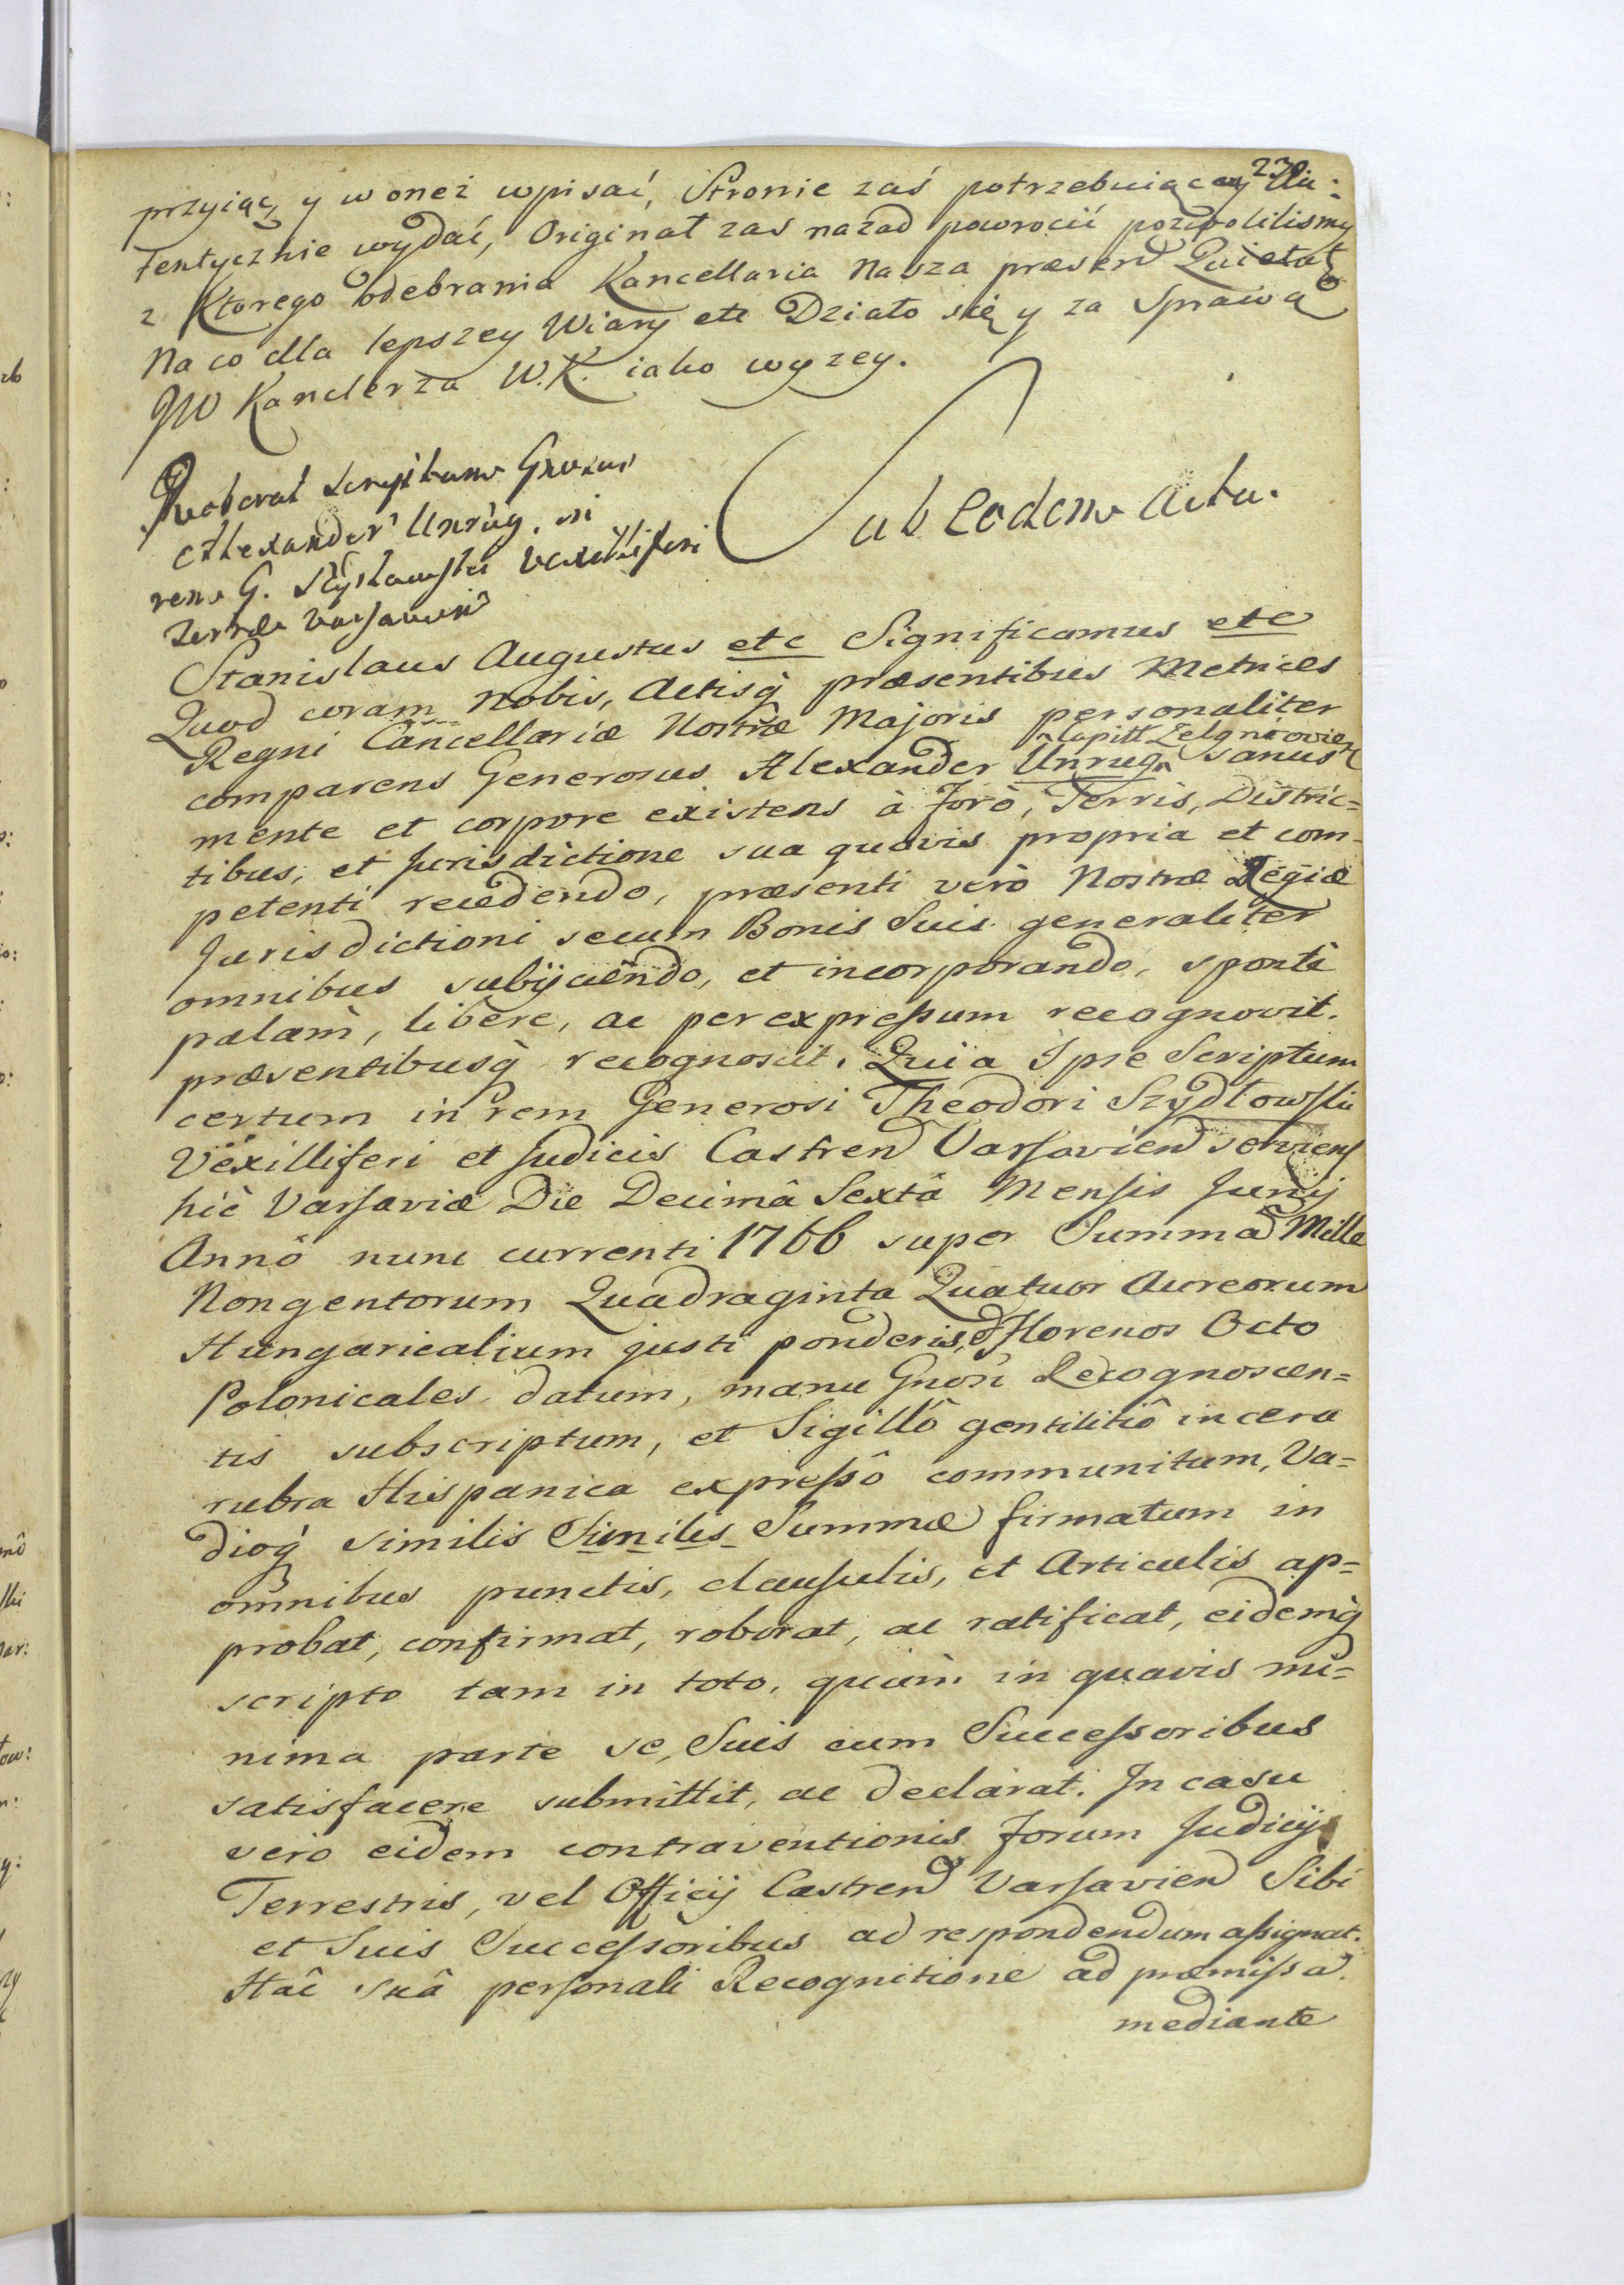 230
przyiąc, y w oneż wpisać, Stronie zaś potrzebuiącey Au-
tentycznie wydać, Originał zas nazad powrocić pozwolilismy
z Ktorego odebrania Kancellaria Nasza præsend Quietat
Na co dla lepszey Wiary etc Działo się y za Sprawą
JW Kanclerza W.K. iako wyzey.
Roborat Scriptum Gnosus
Alexander Unrug. in
rem G. Szydłowski Vexilliferi
Terræ Varsavien
Sub Eodem Actu.
Stanislaus Augustus etc Significamus etc
Quod coram Nobis, Actisq̀ præsentibus Metrices
Regni Cancellariæ Nostræ Majoris personaliter
comparens Generosus Alexander Unrug Capitt Zelgniovien sanus
mente et corpore existens à Forô, Terris, Distric=
tibus, et Jurisdictione sua quavis propria et com-
petenti recedendo, præsenti verò Nostræ Regiæ
Jurisdictioni secum Bonis Suis generaliter
omnibus subijciendo, et incorporando, spontè
palam, libere, ac per expreſsum recognovit.
præsentibusq̀ recognoscit. Quia Ipse Scriptum
certum in rem Generosi Theodori Szydłowſki
Vexilliferi et Judicis Castrend Varſaviend serviens
hic Varſaviæ Die Decimâ Sextâ Menſis Junij
Annô nunc currenti 1766 super Summa Mille
Nongentorum Quadraginta Quatuor Aureorum
Hungaricalium justi ponderis, et Florenos Octo
Polonicales datum, manu Gnosi Recognoscen=
tis subscriptum, et Sigillô gentilitiô in cera
rubra Hispanica expreſsô communitum, Va=
dioq̀ similis Similis Summæ firmatum in
omnibus punctis, clauſulis, et Articulis ap=
probat, confirmat, roborat, ac ratificat, eidemq̀
scripto tam in toto, quàm in quavis mi=
nima parte se, Suis cum Succeſsoribus
satisfacere submittit, ac declarat. In casu
vero eidem contraventionis Forum Judicij
Terrestris, vel Officij Castrend Varſaviend Sibi
et Suis Succeſsoribus ad respondendum aſsignat.
Hac suâ perſonali Recognitione ad præmiſsa
mediante